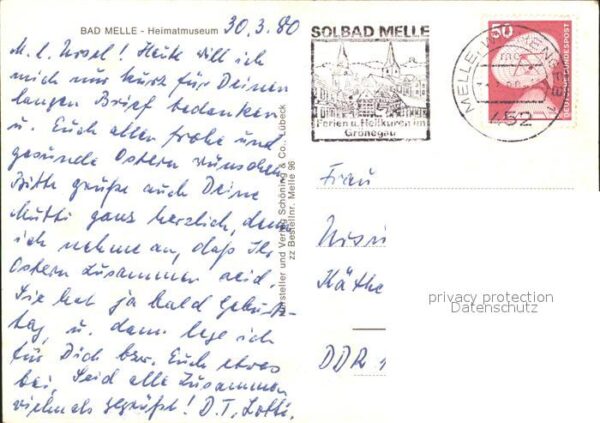 BAD MELLE - Heimatmuseum
30.3.80
M. l. Ursel! Heute will ich
mich nur kurz für Deinen
langen Brief bedanken
u. Euch allen frohe und
gesunde Ostern wünschen.
Bitte grüße auch Deine
Mutti ganz herzlich, denn
ich nehme an, daß Ihr
Ostern zusammen seid.
Sie hat ja bald Geburts-
tag, u. dann lege ich
für Dich bzw. Euch etwas
bei. Seid alle zusammen
vielmals gegrüßt! D. T. Lotti.
Hersteller und Verlag Schöning & Co., Lübeck
ZZ Bestellnr. Melle 96
SOLBAD MELLE
Ferien u. Heilkuren im
Grönegau
MELLE
452
50
DEUTSCHE BUNDESPOST
Frau
Käthe
DDR
privacy protection
Datenschutz